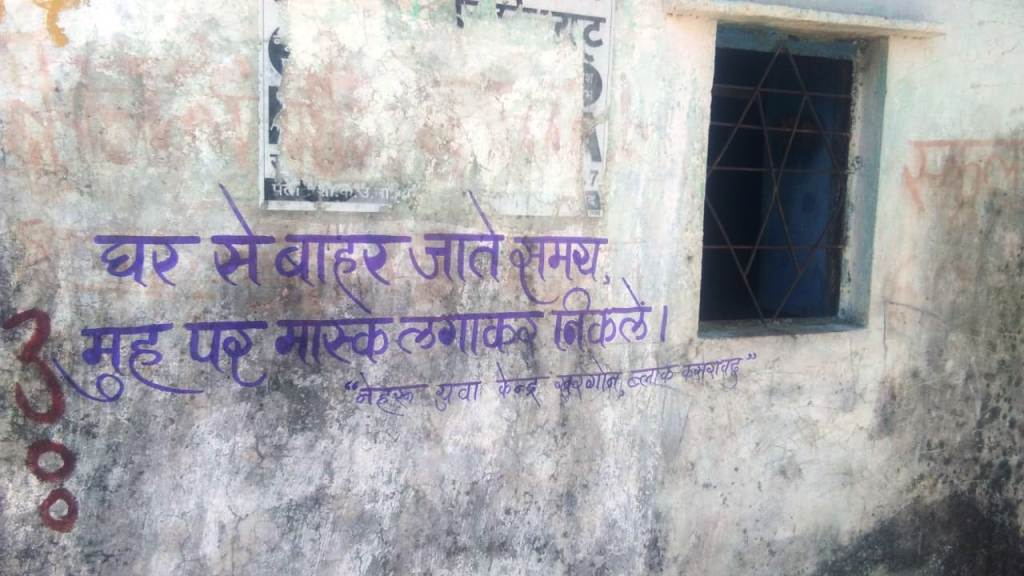 घर से बाहर जाते समय,
मुह पर मास्क लगाकर निकलें।
"नेहरू युवा केन्द्र खरगोन, ब्लाक कसरावद"